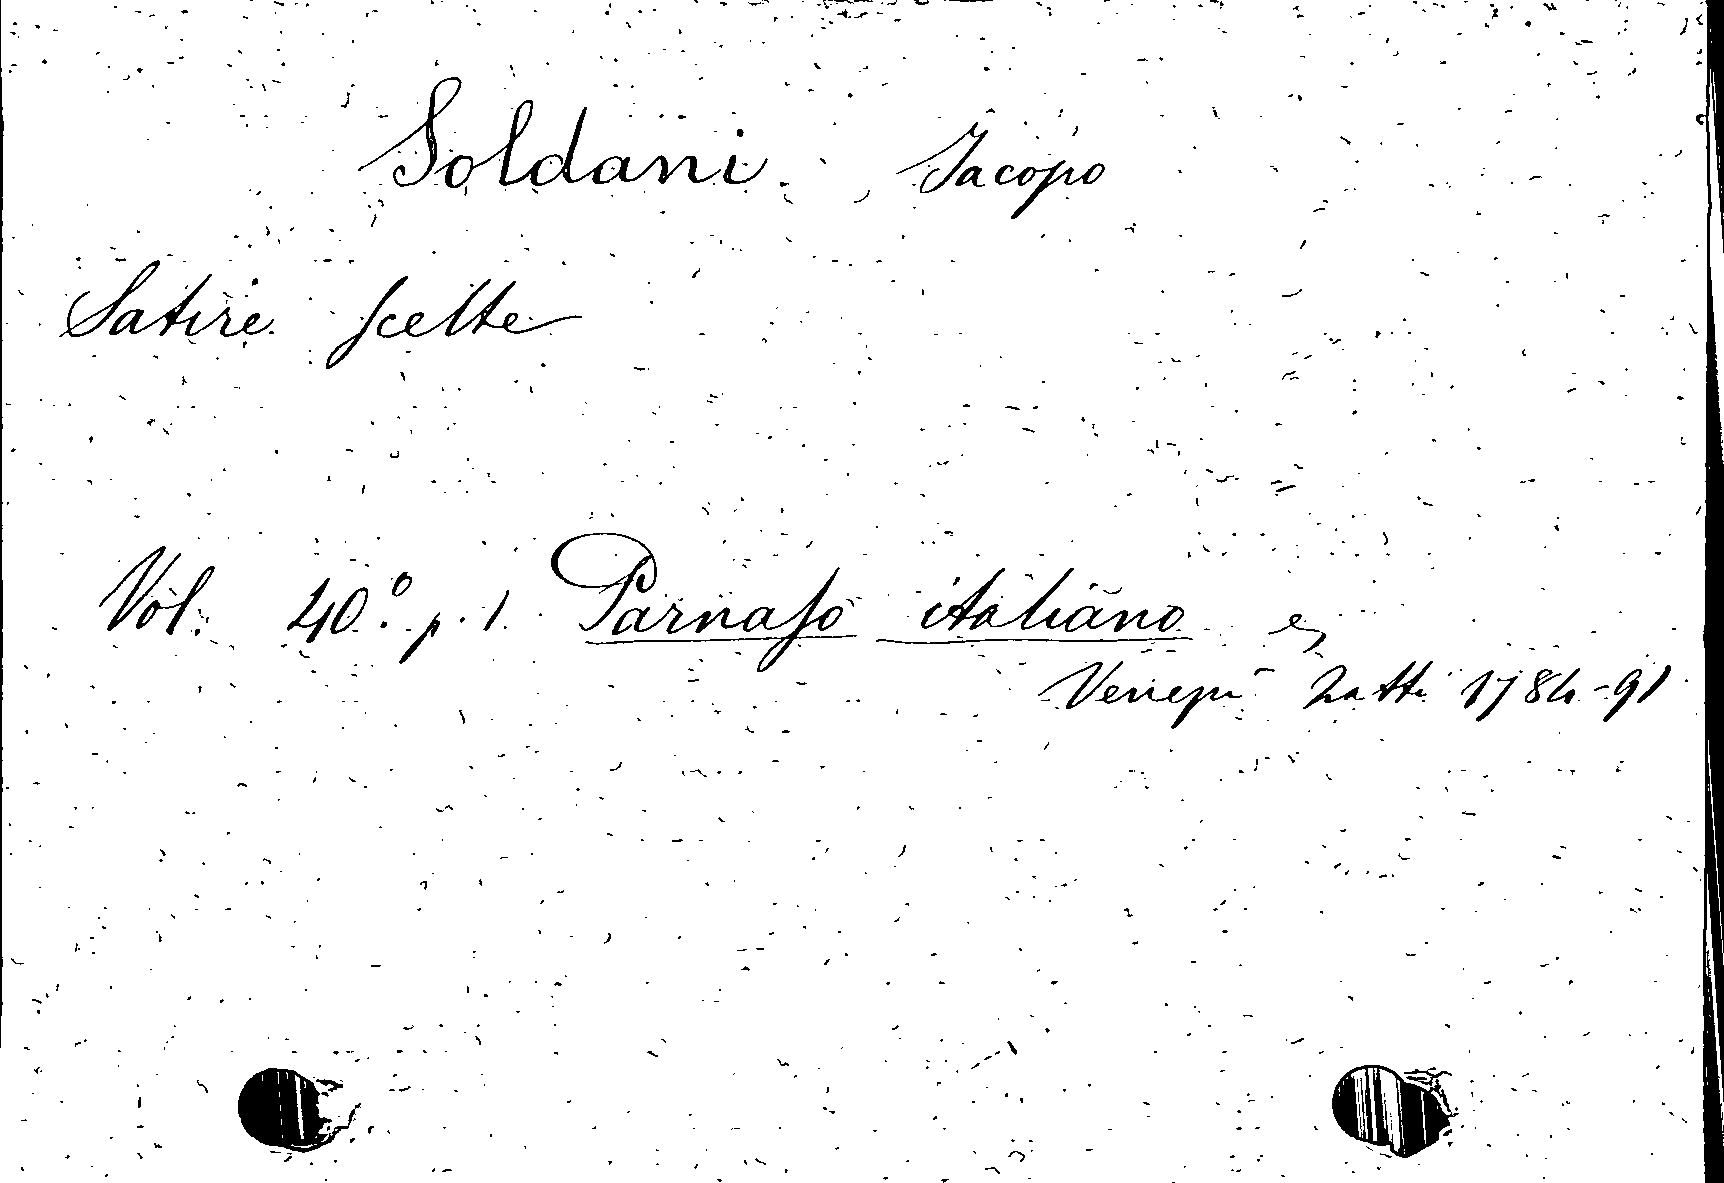 Soldani, Jacopo
Satire scelte
Vol. 40.º p. 1. Parnaso italiano
Zatti 1784-91